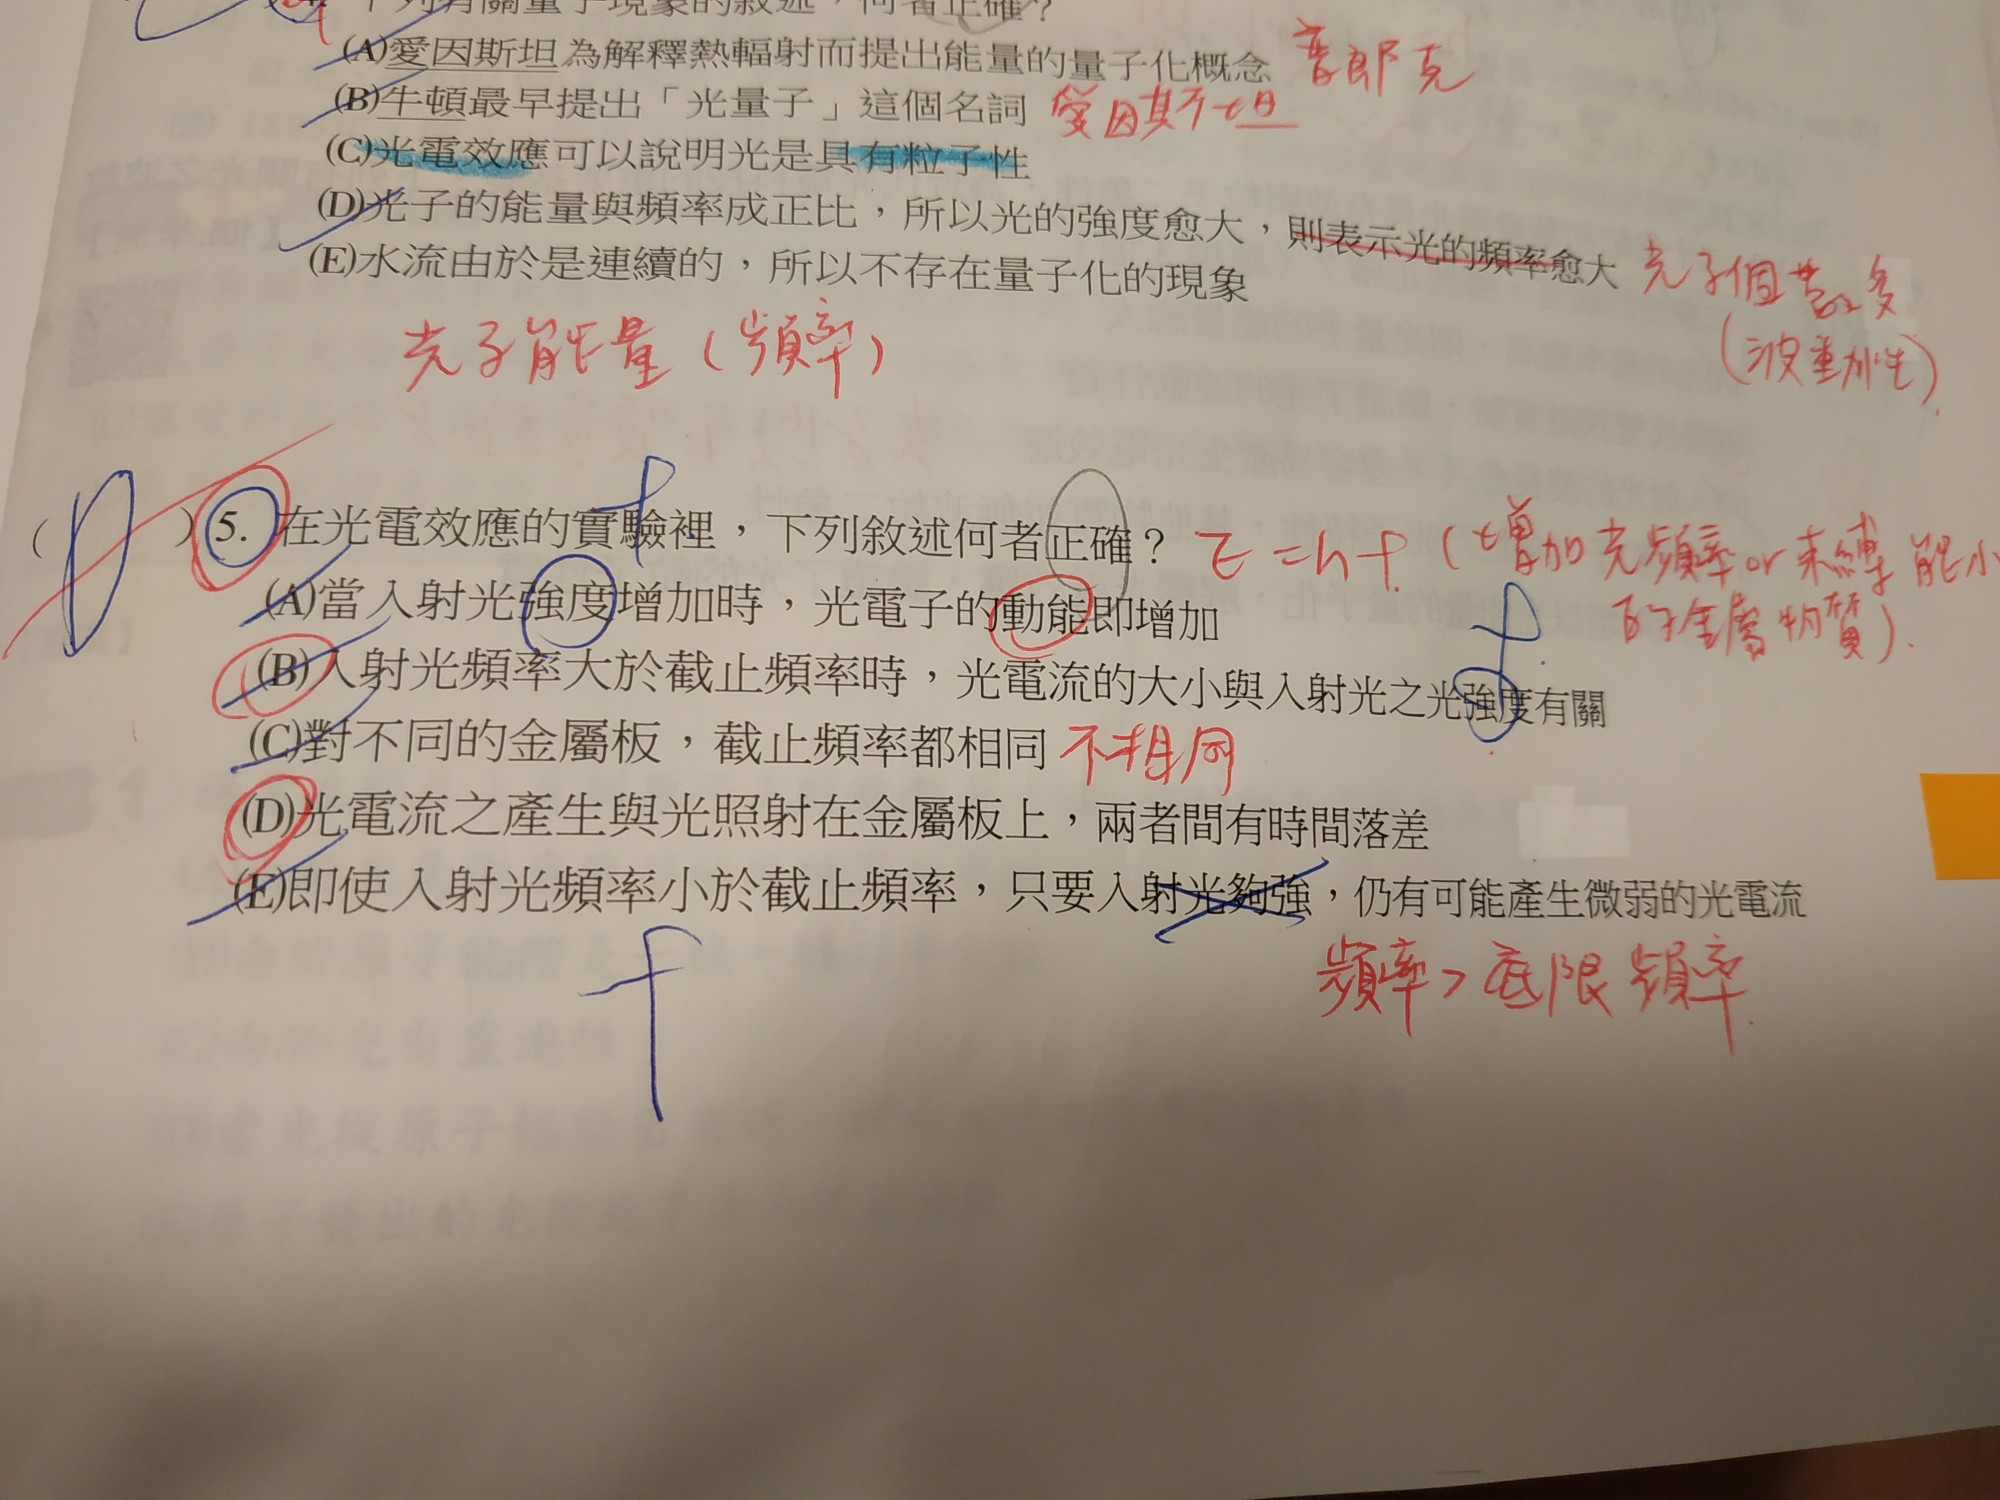 下列有關量子現象的敘述，何者正確？
(A)愛因斯坦為解釋熱輻射而提出能量的量子化概念 普郎克
(B)牛頓最早提出「光量子」這個名詞 愛因斯坦
(C)光電效應可以說明光是具有粒子性
(D)光子的能量與頻率成正比，所以光的強度愈大，則表示光的頻率愈大 光子個數多
(波動性)
(E)水流由於是連續的，所以不存在量子化的現象
光子能量(頻率)
( D ) 5. 在光電效應的實驗裡，下列敘述何者正確？ E=hf (增加光頻率or束縛能小
的金屬物質).
(A)當入射光強度增加時，光電子的動能即增加
(B)入射光頻率大於截止頻率時，光電流的大小與入射光之光強度有關
(C)對不同的金屬板，截止頻率都相同 不相同
(D)光電流之產生與光照射在金屬板上，兩者間有時間落差
(E)即使入射光頻率小於截止頻率，只要入射光夠強，仍有可能產生微弱的光電流
頻率>底限頻率
f